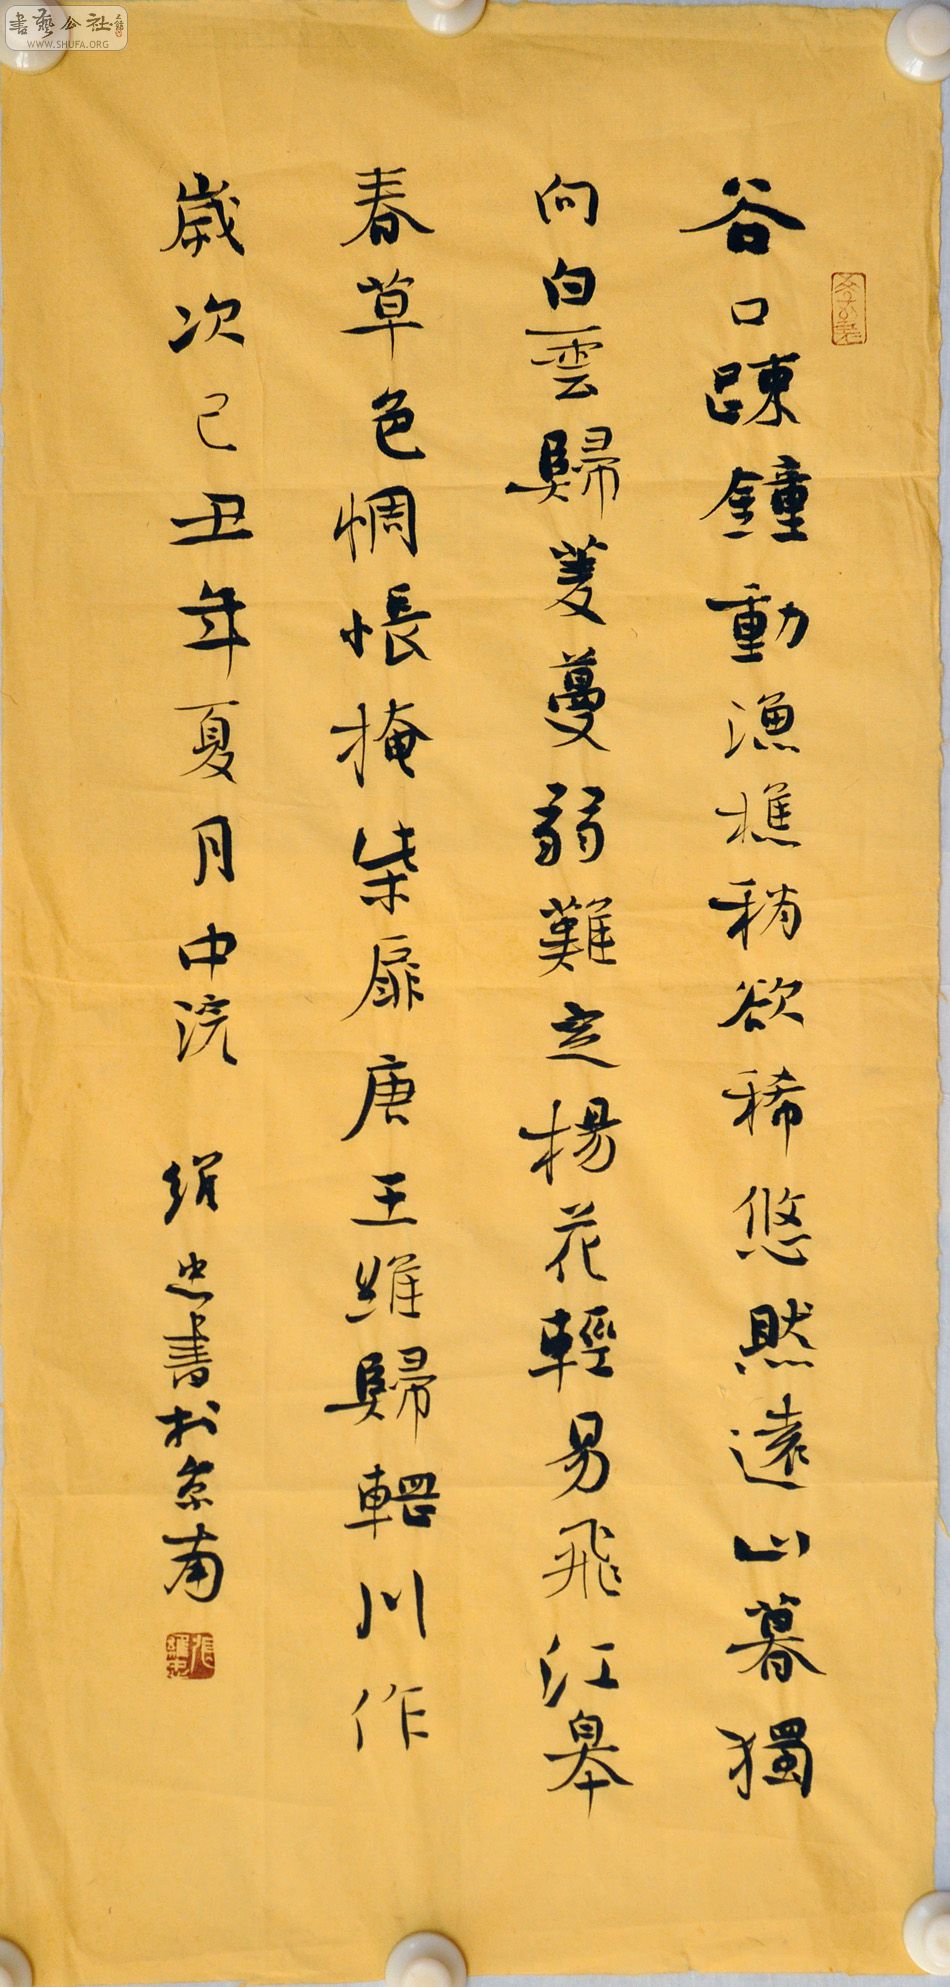 書藝公社
WWW.SHUFA.ORG
谷口疎鐘動漁樵稍欲稀悠然遠山暮獨
向白雲歸菱蔓弱難定楊花輕易飛江皋
春草色惆悵掩柴扉唐王維歸輞川作
歲次己丑年夏月中浣
忠書於京南